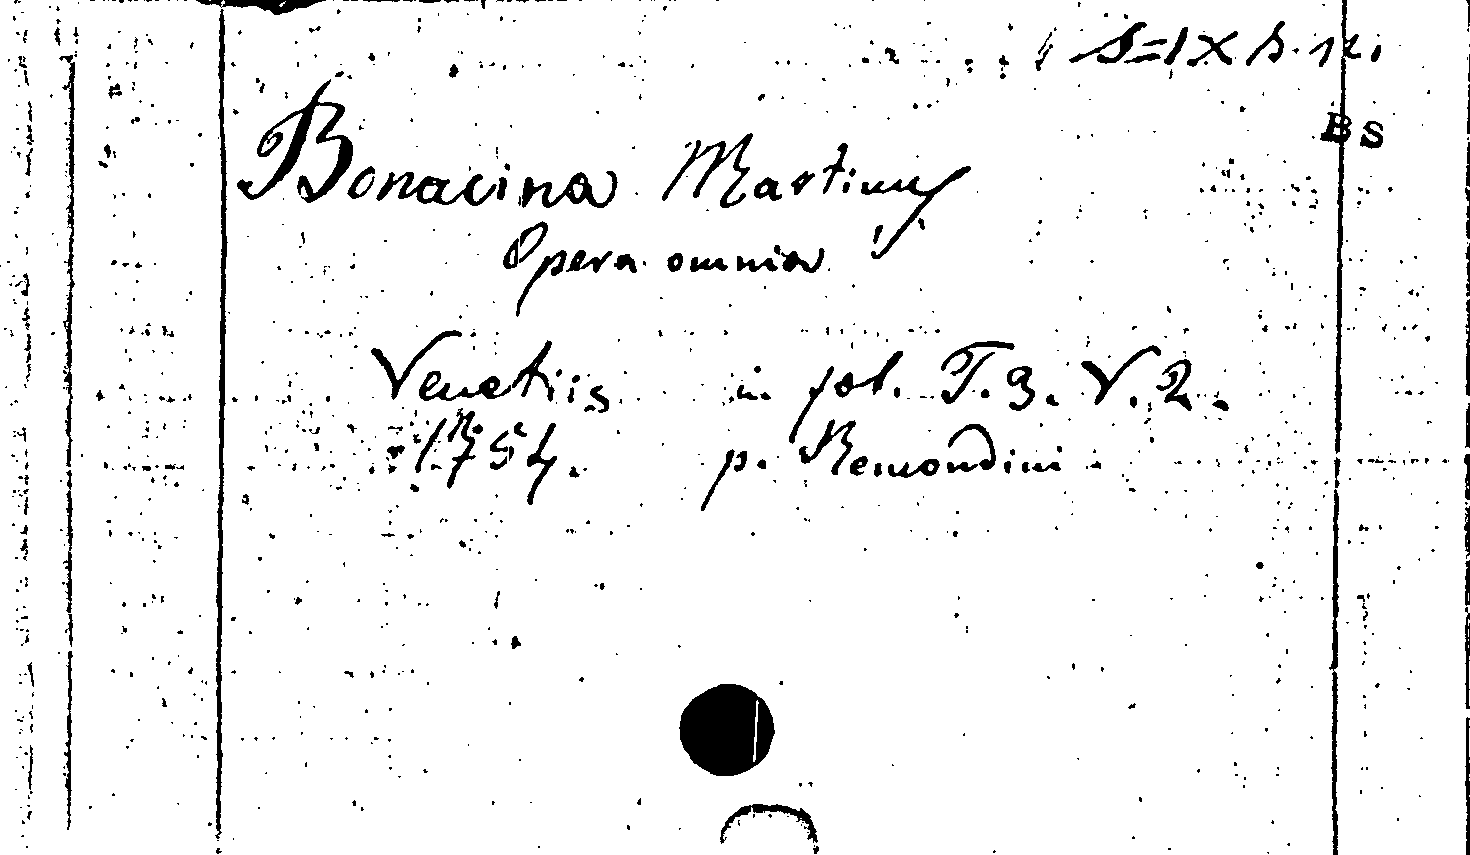 S=IX h. 12.
BS
Bonacina Martinus
Opera omnia
Venetiis in fol. T. 3. V. 2.
1754. p. Remondini